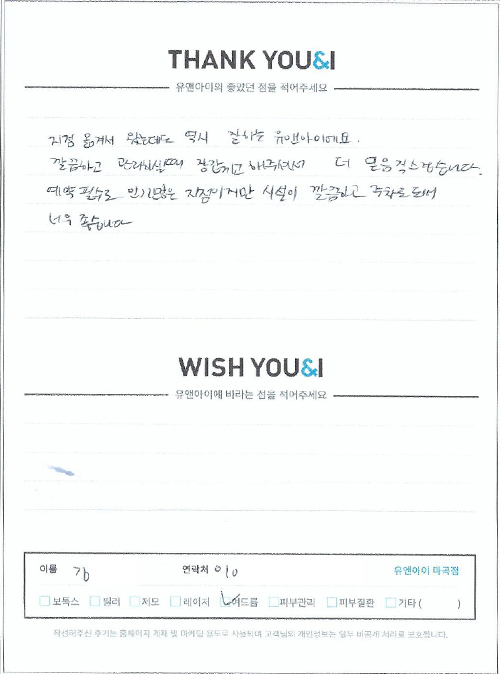 THANK YOU&I
유앤아이의 좋았던 점을 적어주세요
지점 옮겨서 왔는데도 역시 잘하는 유앤아이예요.
깔끔하고 관리하실때 장갑끼고 해주셔서 더 믿음직스럽습니다.
예약 필수로 인기많은 지점이지만 시설이 깔끔하고 주차도 돼서
너무 좋습니다
WISH YOU&I
유앤아이에 바라는 점을 적어주세요
이름 김 연락처 010 유앤아이 마곡점
보톡스 필러 제모 레이저 여드름 피부관리 피부질환 기타 ( )
작성해주신 후기는 홈페이지 게재 및 마케팅 용도로 사용되며 고객님의 개인정보는 일부 비공개 처리로 보호됩니다.